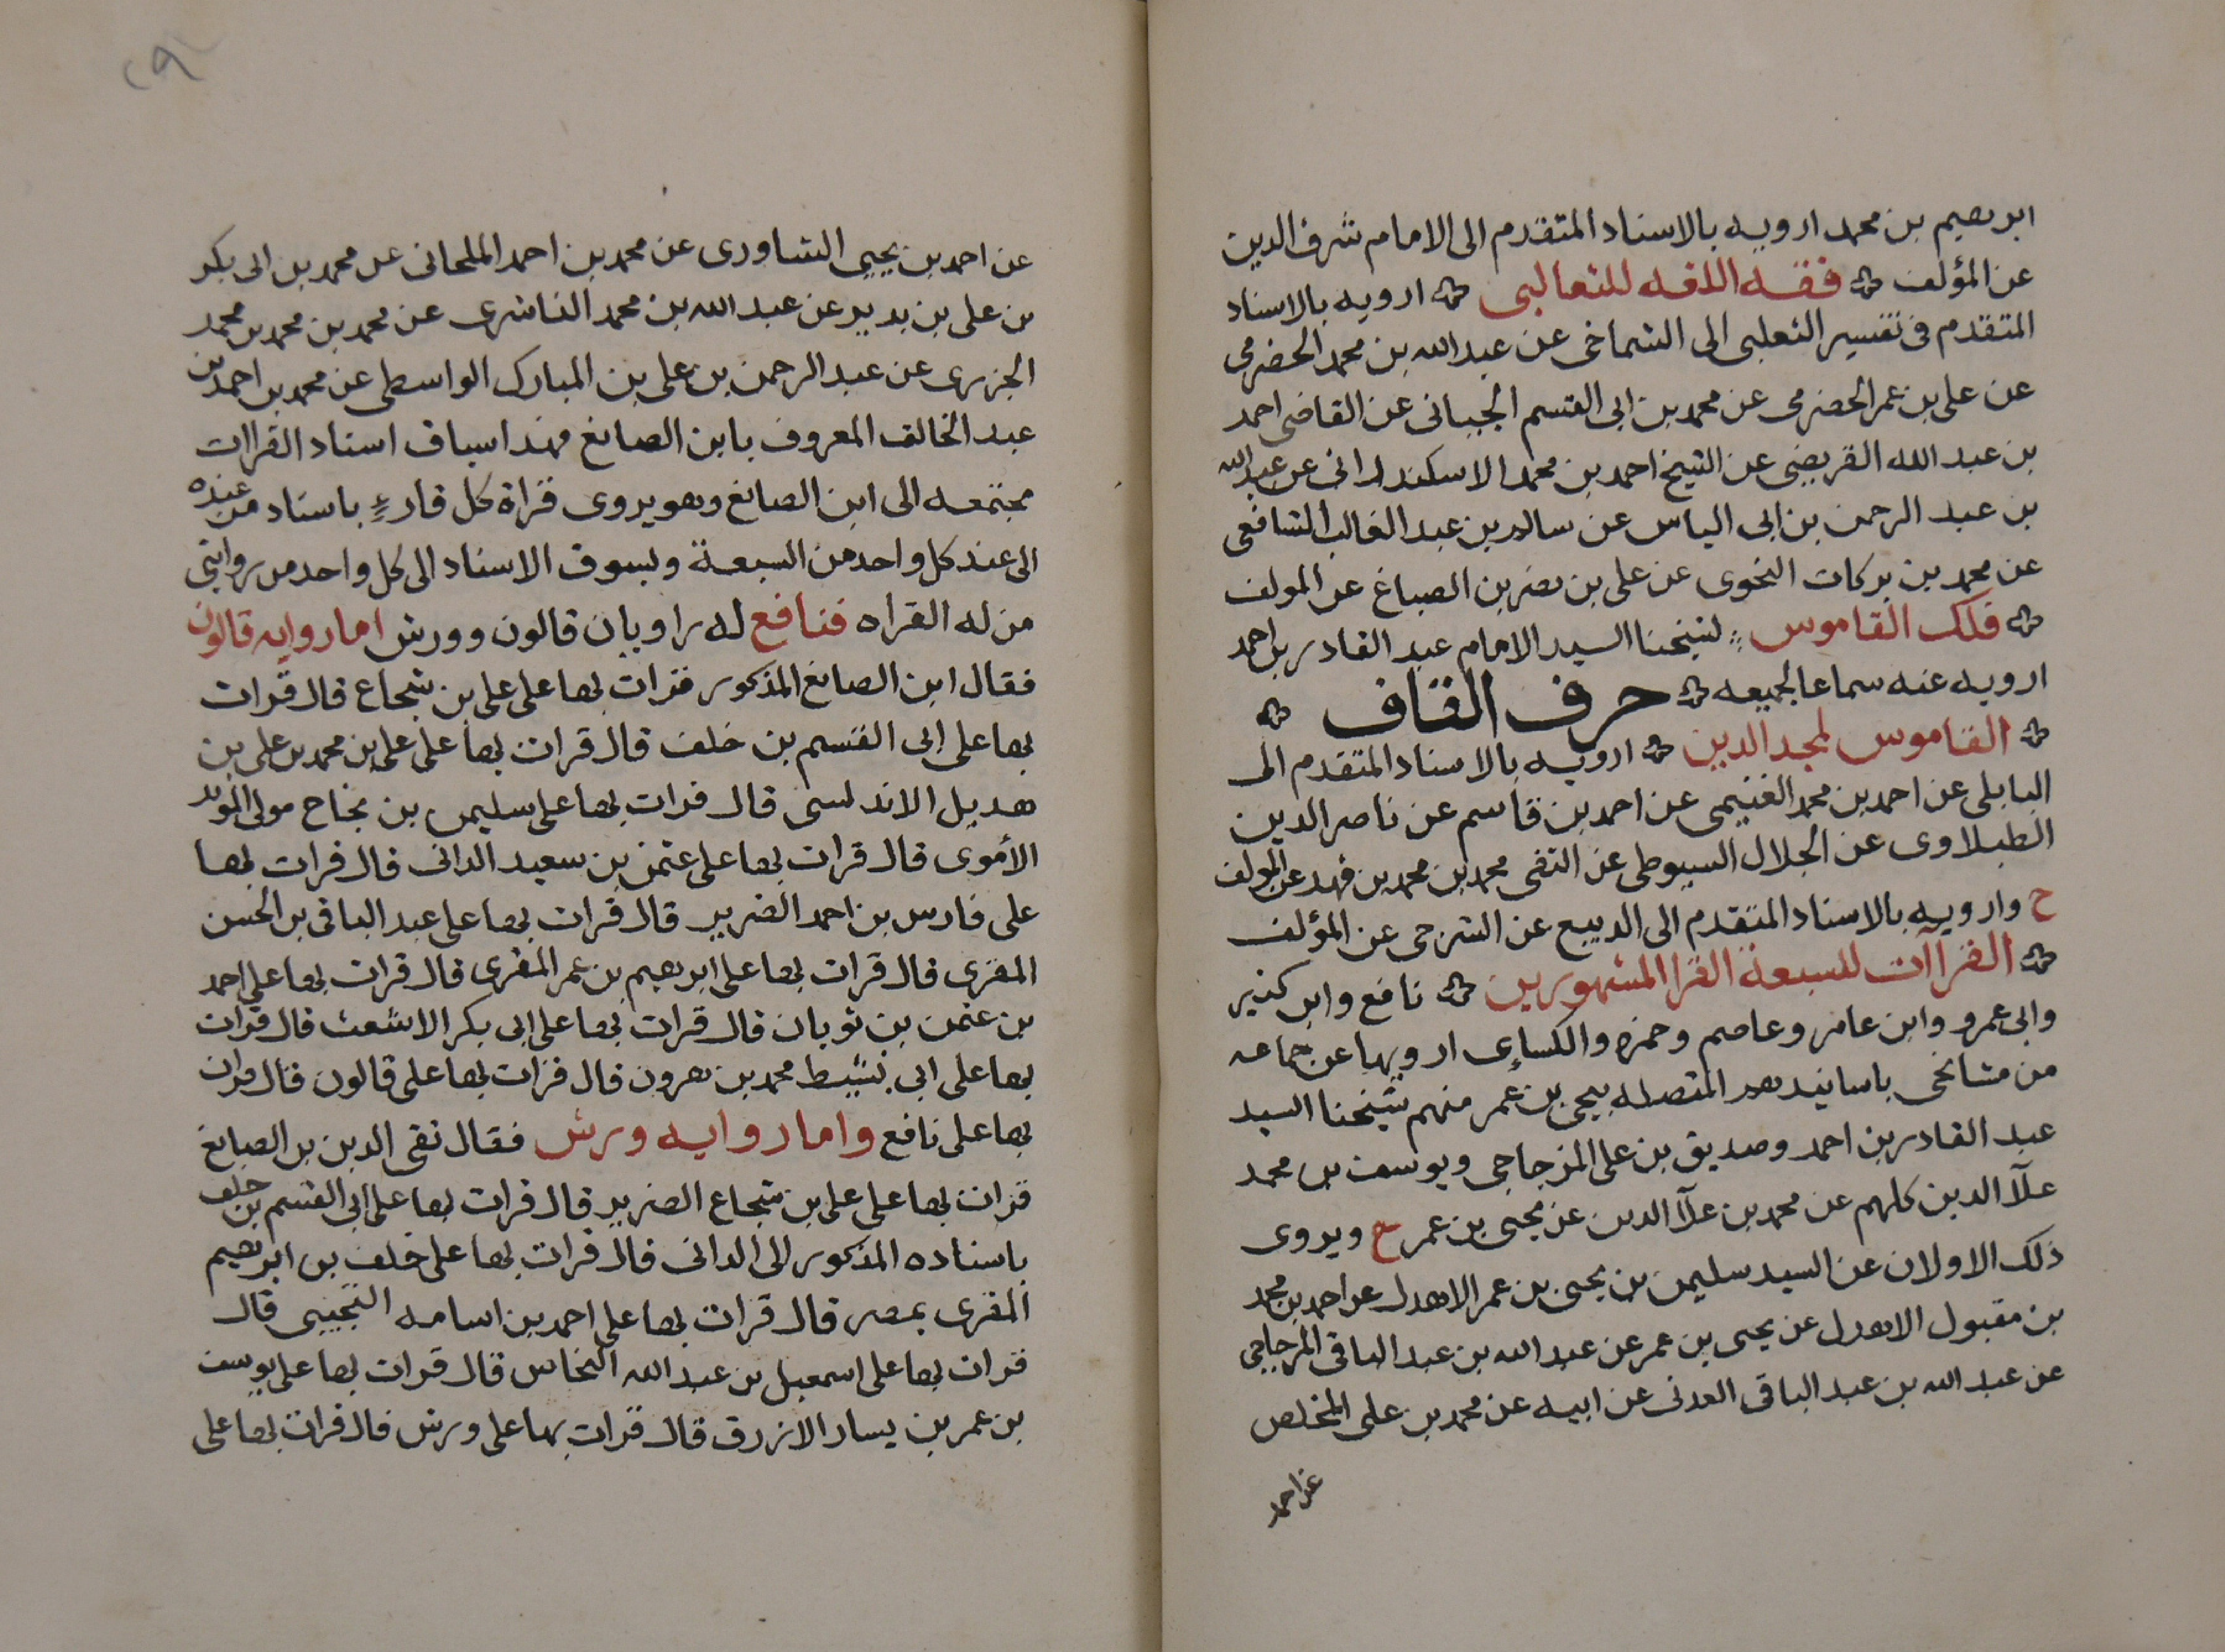 ابرهيم بن محمد ارويه بالاسناد المتقدم الى الامام شرف الدين
عن المؤلف فقه اللغه للثعالبي ارويه بالاسناد
المتقدم في تفسير الثعلبي الى الشماخي عن عبدالله بن محمد الحضرمي
عن علي بن عمر الحضرمي عن محمد بن ابي القسم الجبائي عن القاضي احمد
بن عبد الله القريضي عن الشيخ احمد بن محمد الاسكندراني عن عبد الله
بن عبد الرحمن بن ابي الياس عن سالم بن عبد الغالب الشافعي
عن محمد بن بركات النحوي عن علي بن نصر بن الصباغ عن المولف
فلك القاموس لشيخنا السيد الامام عبد القادر بن احمد
ارويه عنه سماعا لجميعه حرف القاف
القاموس لمجد الدين ارويه بالاسناد المتقدم الى
البابلي عن احمد بن محمد الغنيمي عن احمد بن قاسم عن ناصر الدين
الطبلاوى عن الجلال السيوطي عن التقي محمد بن محمد بن فهد عن المولف
ح وارويه بالاسناد المتقدم الى الديبع عن الشرجى عن المؤلف
القراآت للسبعة القرا المشهورين نافع وابن كثير
وابي عمرو وابن عامر وعاصم وحمزه والكساءي ارويها عن جماعه
من مشائخي باسانيدهم المتصله بيحي بن عمر منهم شيخنا السيد
عبد القادر بن احمد وصديق بن على المزجاجي ويوسف بن محمد
علآ الدين كلهم عن محمد بن علآ الدين عن يحيى بن عمر ح ويروى
ذلك الاولان عن السيد سليمن بن يحيى بن عمر الاهدل عن احمد بن محمد
بن مقبول الاهدل عن يحيى بن عمر عن عبد الله بن عبد الباقي المزجاجي
عن عبد الله بن عبد الباقي العدني عن ابيه عن محمد بن على المخلص
عن احمد
٢٩
عن احمد بن يحيى الشاورى عن محمد بن احمد الملحانى عن محمد بن ابي بكر
بن على بن بدير عن عبد الله بن محمد الناشرى عن محمد بن محمد بن محمد
الجزرى عن عبد الرحمن بن على بن المبارك الواسطى عن محمد بن احمد بن
عبد الخالق المعروف بابن الصائغ فهذا سياق اسناد القراات
مجتمعه الى ابن الصائغ وهو يروى قراة كل قارء باسناد من عنده
الى عند كل واحد من السبعة ويسوق الاسناد الى كل واحد من روايتي
من له القراه فنافع له راويان قالون وورش اما روايه قالون
فقال ابن الصائغ المذكور قرات بها على على بن شجاع قال قرات
بها على ابى القسم بن خلف قال قرات بها على على بن محمد بن على بن
هديل الاندلسى قال قرات بها على سليمن بن نجاح مولى المويد
الأموى قال قرات بها على عثمن بن سعيد الدانى قال قرات بها
على فارس بن احمد الضرير قال قرات بها على عبد الباقي بن الحسن
المقرى قال قرات بها على ابرهيم بن عمر المقرى قال قرات بها على احمد
بن عثمن بن ثوبان قال قرات بها على ابى بكر الاشعث قال قرات
بها على ابي نشيط محمد بن هرون قال قرات بها على قالون قال قرات
بها على نافع واما روايه ورش فقال تقى الدين بن الصايغ
قرات بها على على بن شجاع الضرير قال قرات بها على ابى القسم بن خلف
باسناده المذكور الى الدانى قال قرات بها على خلف بن ابرهيم
المقرى بمصر قال قرات بها على احمد بن اسامه التجيبى قال
قرات بها على اسمعيل بن عبد الله النحاس قال قرات بها على يوسف
بن عمر بن يسار الازرق قال قرات بها على ورش قال قرات بها على